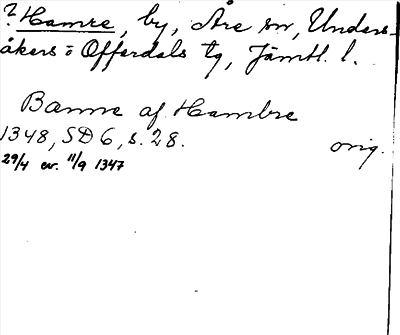 ? Hamre, by, Åre sn, Unders-
åkers o Offerdals tg, Jämtl. l.
Banne af Hambre
1348, SD 6, s. 28. orig.
29/4 ev. 11/9 1347